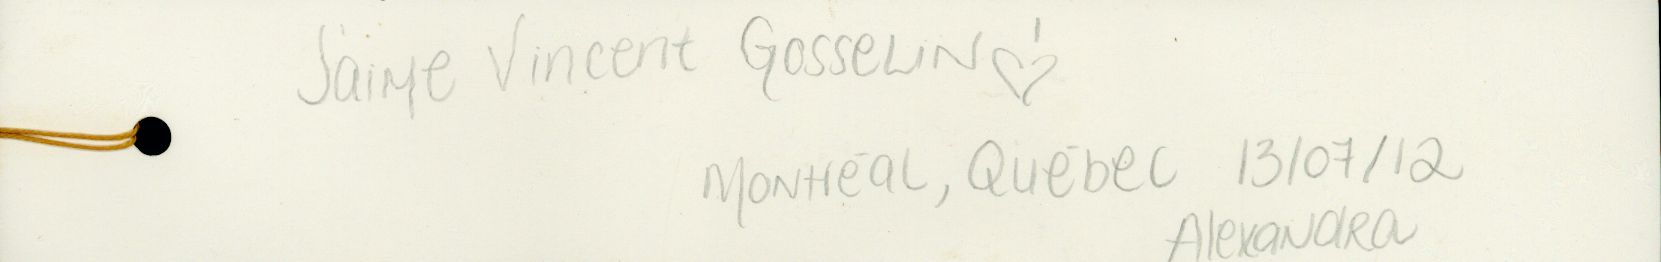 J'aime Vincent Gosselin ♡!
Montréal, Québec 13/07/12
Alexandra